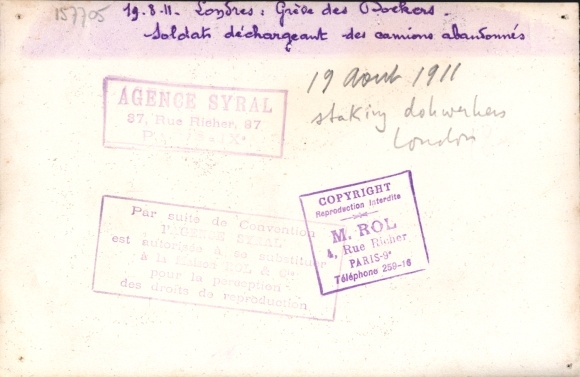 157705
19.8.11. Londres: Grève des Dockers.
Soldats déchargeant des camions abandonnés
19 Aout 1911
staking dokwerkers
London
AGENCE SYRAL
37, Rue Richer, 37
COPYRIGHT
Reproduction Interdite
M. ROL
4, Rue Richer
PARIS-9e
Téléphone 259-16
Par suite de Convention
l'AGENCE SYRAL
est autorisée à se substituer
à la Maison ROL & Cie
pour la perception
des droits de reproduction